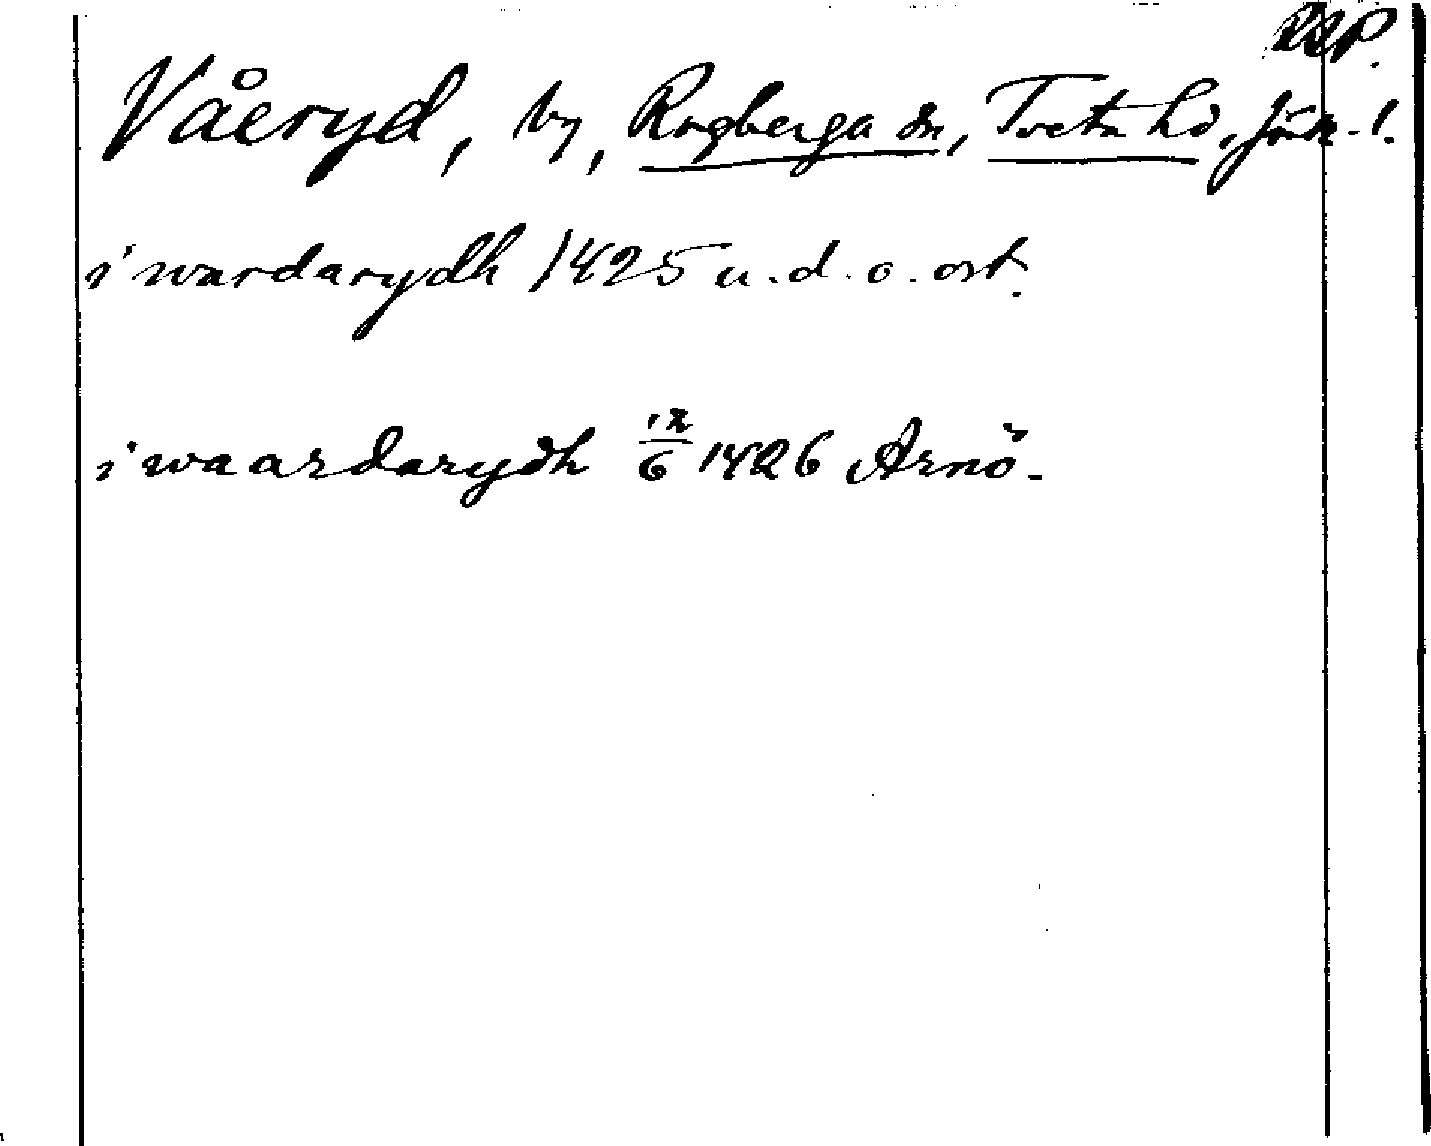 RAP.
Våeryd, by, Rogberga sn, Tveta hd, Jönk. l.
i wardarydh 1425 u.d.o. ort.
i waardarydh 12/6 1426 Arnö.